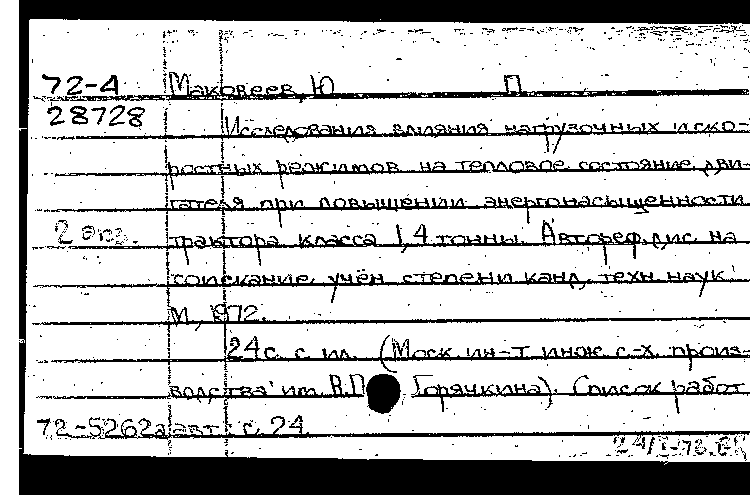 72-4 Маковеев, Ю П
28728 Исследования влияния нагрузочных и ско-
ростных режимов на тепловое состояние дви-
гателя при повышении энергонасыщенности
2 экз. трактора класса 1,4 тонны. Автореф. дис. на
соискание учён степени канд. техн наук
М, 1972.
24 с. с ил. (Моск. ин-т инж с-х. произ-
водства им. В.П Горячкина). Список работ
72-5262а авт: с. 24
24/I-73.